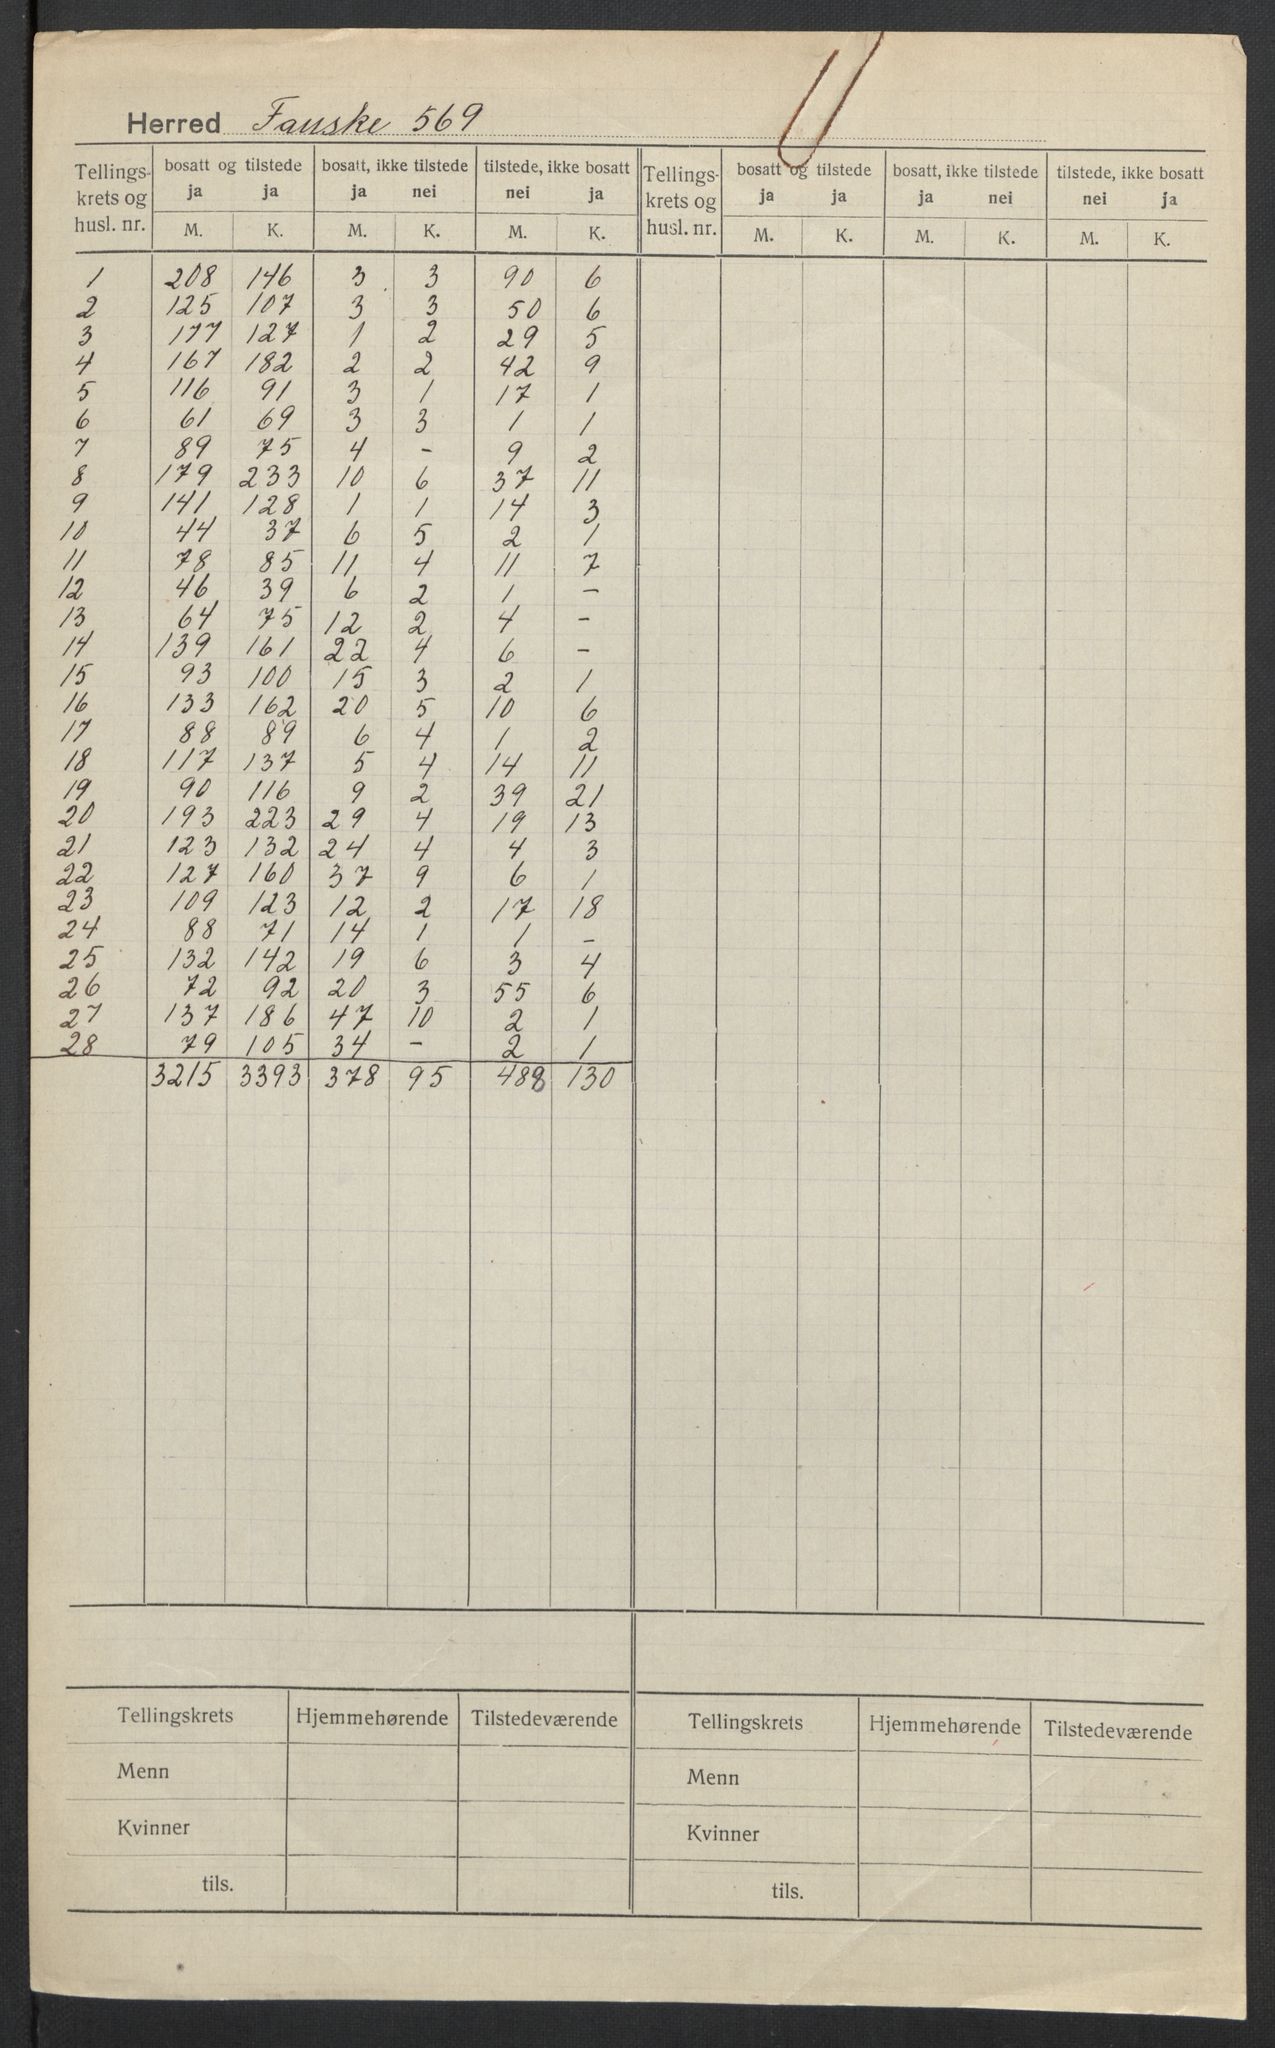 Herred Fauske 569
Tellings- krets og husl. nr. | bosatt og tilstede | bosatt, ikke tilstede | tilstede, ikke bosatt | Tellings- krets og husl. nr. | bosatt og tilstede | bosatt, ikke tilstede | tilstede, ikke bosatt
ja ja ja nei nei ja ja ja ja nei nei ja
M. K. M. K. M. K. M. K. M. K. M. K.
1 208 146 3 3 90 6
2 125 107 3 3 50 6
3 177 127 1 2 29 5
4 167 182 2 2 42 9
5 116 91 3 1 17 1
6 61 69 3 3 1 1
7 89 75 4 - 9 2
8 179 233 10 6 37 11
9 141 128 1 1 14 3
10 44 37 6 5 2 1
11 78 85 11 4 11 7
12 46 39 6 2 1 -
13 64 75 12 2 4 -
14 139 161 22 4 6 -
15 93 100 15 3 2 1
16 133 162 20 5 10 6
17 88 89 6 4 1 2
18 117 137 5 4 14 11
19 90 116 9 2 39 21
20 193 223 29 4 19 13
21 123 132 24 4 4 3
22 127 160 37 9 6 1
23 109 123 12 2 17 18
24 88 71 14 1 1 -
25 132 142 19 6 3 4
26 72 92 20 3 55 6
27 137 186 47 10 2 1
28 79 105 34 - 2 1
3215 3393 378 95 488 130
Tellingskrets Hjemmehørende Tilstedeværende Tellingskrets Hjemmehørende Tilstedeværende
Menn Menn
Kvinner Kvinner
tils. tils.